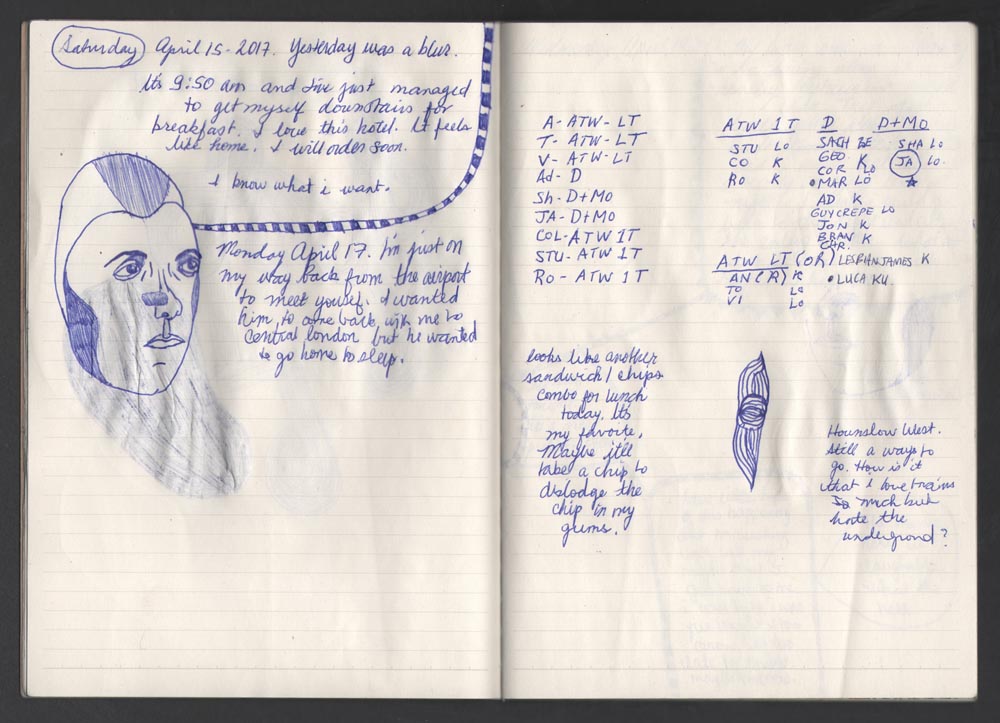 Saturday April 15-2017. Yesterday was a blur.
It's 9:50 am and I've just managed
to get myself downstairs for
breakfast. I love this hotel. It feels
like home. I will order soon.
I know what i want.
Monday April 17. I'm just on
my way back from the airport
to meet yousef. I wanted
him to come back with me to
Central london but he wanted
to go home to sleep.
A- ATW- LT
T- ATW- LT
V- ATW- LT
Ad- D
Sh- D+MO
JA- D+MO
COL- ATW 1T
STU- ATW 1T
RO- ATW 1T
ATW 1T
STU LO
CO K
RO K
D
SACH BE
GEO K
COR LO
•MAR LO
AD K
GUYCREPE LO
JON K
BRAN K
CHR.
D+MO
SHA LO
JA LO.
ATW LT (OR) LESBIANJAMES K
AN(A) K •LUCA KU.
TO LO
VI LO
looks like another
sandwich/chips
combo for lunch
today. It's
my favorite,
Maybe it'll
take a chip to
dislodge the
chip in my
gums.
Hounslow West.
Still a ways to
go. How is it
that I love trains
so much but
hate the
undergrond?